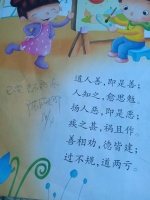 道人善，即是善；
人知之，愈思勉。
扬人恶，即是恶；
疾之甚，祸且作。
善相劝，德皆建；
过不规，道两亏。